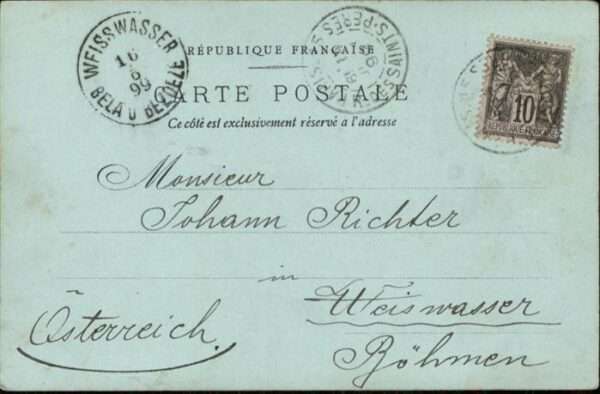 WEISSWASSER
16
6
99
BELA U BEZDEZE
RÉPUBLIQUE FRANÇAISE
CARTE POSTALE
Ce côté est exclusivement réservé à l'adresse
SAINTS-PERES
10
REPUBLIQUE FRANÇAISE
Monsieur
Johann Richter
in
Weiswasser
Österreich.
Böhmen